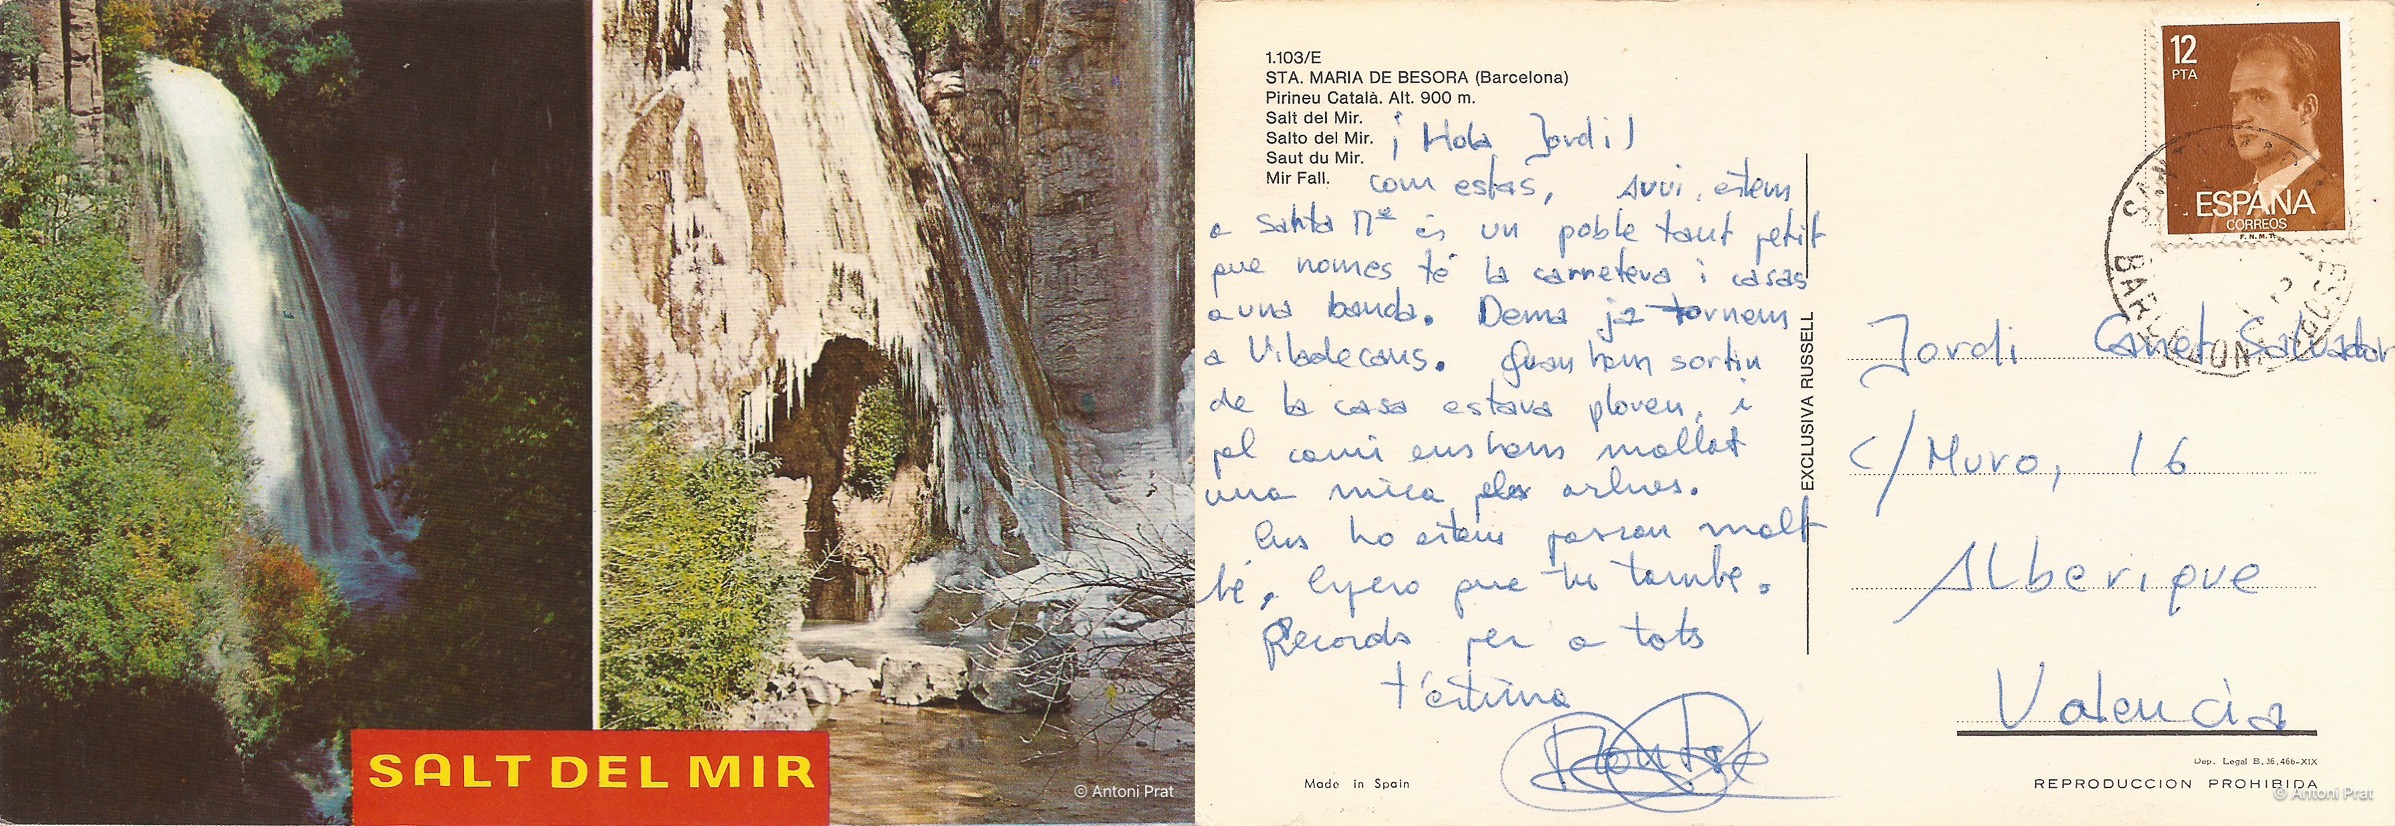 SALT DEL MIR
© Antoni Prat
1.103/E
STA. MARIA DE BESORA (Barcelona)
Pirineu Català. Alt. 900 m.
Salt del Mir.
Salto del Mir.
Saut du Mir.
Mir Fall.
¡Hola Jordi!
com estas, Avui, estem
a Santa Mª és un poble tant petit
que nomes té la carretera i casas
a una banda. Dema ja tornem
a Viladecans. Quan hem sortiu
de la casa estava ploven, i
pel camí ens hem mollat
una mica
Ens ho estem passan molt
bé, Espero que tu tambe.
Records per a tots
t'estima
Made in Spain
EXCLUSIVA RUSSELL
12
PTA
ESPAÑA
CORREOS
F.N.M.T.
BARCELONA
Jordi Canet Salvador
C/ Muro, 16
Alberique
Valencia
Dep. Legal B. 36.466-XIX
REPRODUCCION PROHIBIDA
© Antoni Prat